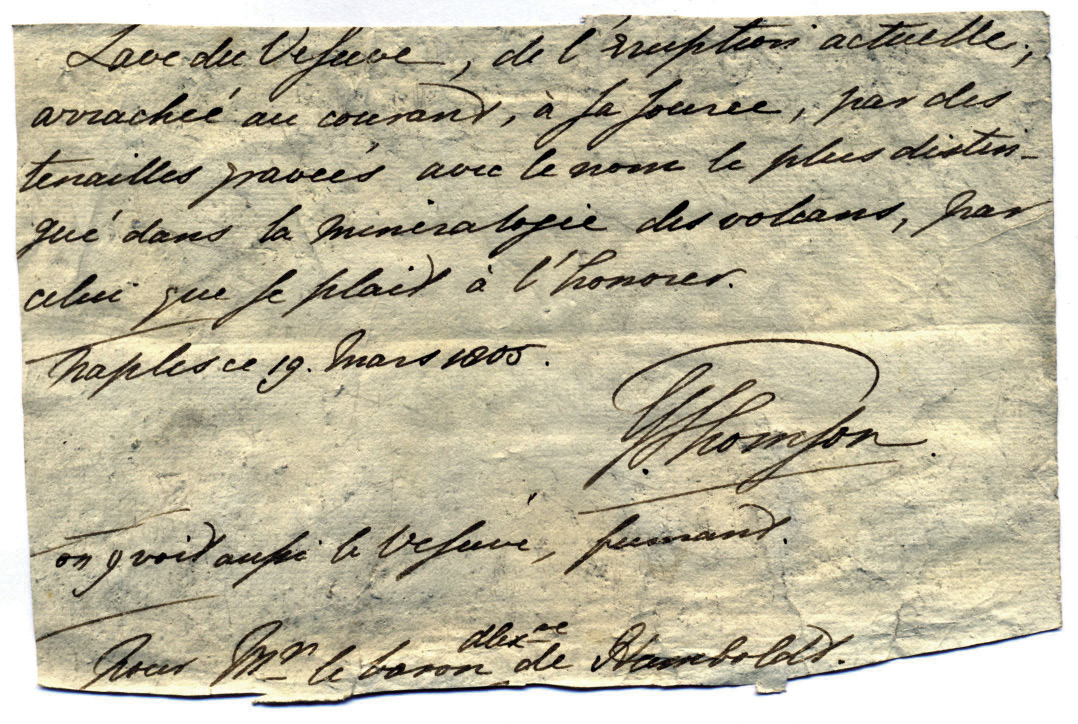 Lave du Vesuve, de l'éruption actuelle,
arrachée au courant, à sa source, par des
tenailles gravées avec le nom le plus distin-
gué dans la mineralogie des volcans, par
celui que se plait à l'honorer.
Naples ce 19. Mars 1805.
G. Thomson.
on y voit aussi le Vesuve, fumant.
Pour Mr. le baron Alexre de Humboldt.